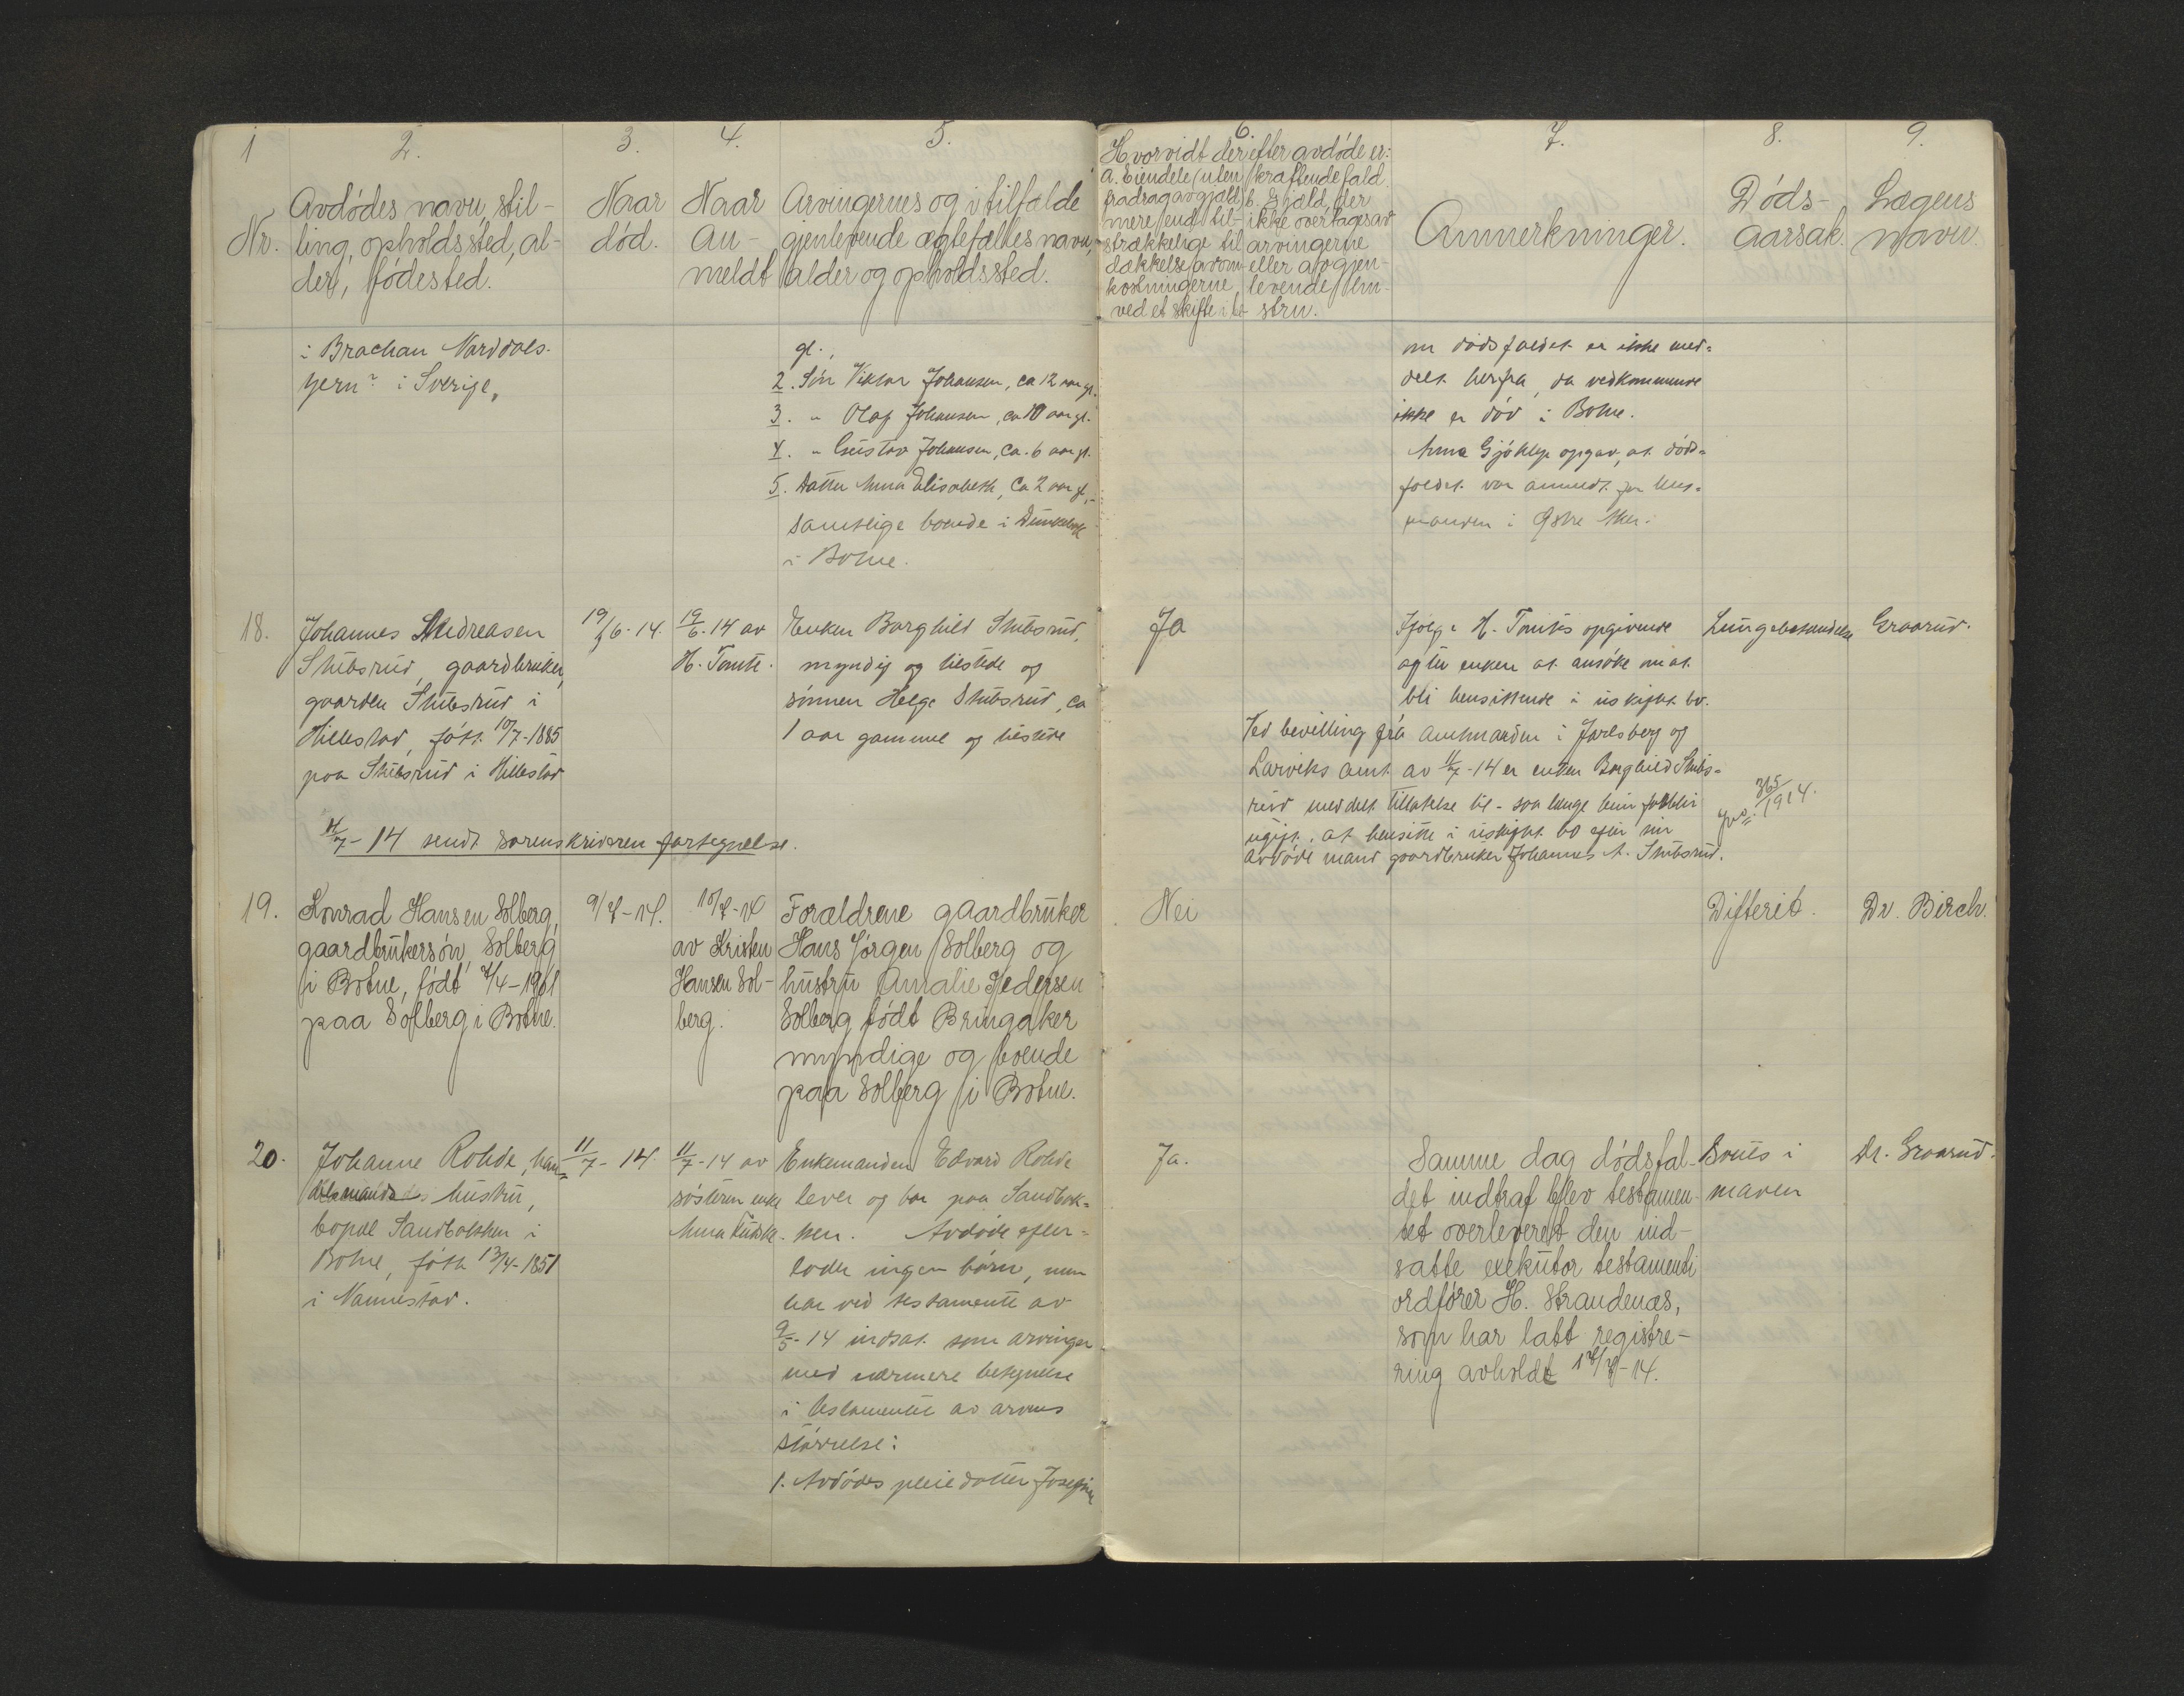 1
2.
3.
4.
5.
6.
7.
8.
9.
Nr.
Avdødes navn, stil-
ling, opholdssted, al-
der, fødested.
Naar
død.
Naar
an-
meldt
Arvingernes og i tilfælde
gjenlevende ægtefælles navn,
alder og opholdssted.
Hvorvidt der efter avdøde er:
a. Eiendele (uten
fradrag av gjæld)
mere end til-
strækkelige til
dækkelse av om-
kostningerne
ved et skifte i be-
kræftende fald
b. Gjæld, der
ikke overtages av
arvingerne
eller av gjen-
levende hu-
stru.
Anmerkninger.
Døds-
aarsak.
Lægens
navn.
i Brachan Norddals-
i Sverige,
gl.,
2. Søn Viktor Johansen, ca 12 aar gl.
3. " Olaf Johansen, ca 10 aar gl.
4. " Gustav Johansen, ca. 6 aar gl.
5. Datter Anna Elisabeth, ca 2 aar gl.,-
samtlige boende i
i Botne.
om dødsfaldet er ikke med-
delt herfra, da vedkommende
ikke er død i Botne.
Anna opgav, at døds-
faldet var anmeldt for lens-
manden i
18.
Johannes Andreasen
Stubsrud, gaardbruker,
gaarden Stubsrud i
Hillestad, født 10/7-1885
paa Stubsrud i Hillestad
19/6-14.
19/6-14 av
H. Tomte.
Enken Borghild Stubsrud,
myndig og tilstede og
sønnen Helge Stubsrud, ca
1 aar gammel og tilstede
Ja
Ifølge H. Tomtes opgivende
agter enken at ansøke om at
bli hensittende i uskiftet bo.
Ved bevilling fra amtmanden i Jarlsberg og
Larviks amt av 11/7-14 er enken Borghild Stubs-
rud meddelt tillatelse til - saa længe hun forblir
ugift, at hensitte i uskiftet bo efter sin
avdøde mand gaardbruker Johannes A. Stubsrud.
365/1914.
Lungebetændelse
Graarud.
11/7-14 sendt sorenskriveren fortegnelse.
19.
Konrad Hansen Solberg,
gaardbrukersøn, Solberg
i Botne, født 4/4-1901
paa Solberg i Botne.
9/7-14.
10/7-14
av Kristen
Hansen Sol-
berg.
Forældrene gaardbruker
Hans Jørgen Solberg og
hustru Amalie Pedersen
Solberg født Bringaker
myndige og boende
paa Solberg i Botne.
Nei
Difterit.
Dr. Birch.
20.
Johanne Rohde, han-
delsmands hustru,
bopæl Sandbakken i
Botne, født 13/4-1851
i Nannestad.
11/7-14.
11/7-14 av
søsteren enke
Anna
Enkemanden Edvard Rohde
lever og bor paa Sandbak-
ken. Avdøde efter-
lodte ingen børn, men
har ved testamente av
9/5-14 indsat som arvinger
med nærmere betegnelse
i testamentet av arvens
størrelse:
1. Avdødes pleiedatter Josefine
Ja.
Samme dag dødsfal-
det indtraf blev testamen-
tet overleveret den ind-
satte exekutor testamenti
ordfører H. Strandenæs,
som har latt registre-
ring avholdt 17/7-14.
Svuls i
maven
Dr. Graarud.